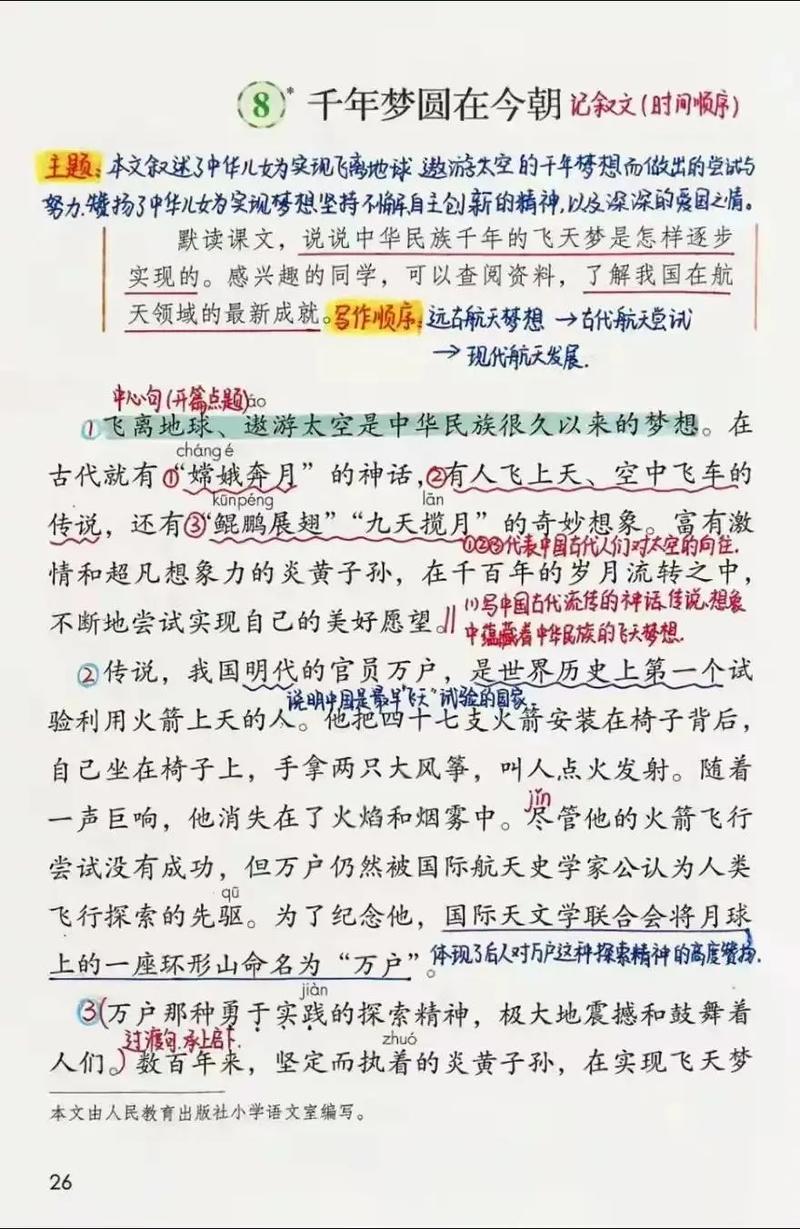 8* 千年梦圆在今朝 记叙文(时间顺序)
主题:本文叙述了中华儿女为实现飞离地球 遨游太空的千年梦想而做出的尝试与
努力,赞扬了中华儿女为实现梦想坚持不懈自主创新的精神,以及深深的爱国之情。
默读课文,说说中华民族千年的飞天梦是怎样逐步
实现的。感兴趣的同学,可以查阅资料,了解我国在航
天领域的最新成就。写作顺序:远古航天梦想→古代航天尝试
→现代航天发展.
中心句(开篇点题) áo
①飞离地球、遨游太空是中华民族很久以来的梦想。在
cháng é
古代就有①“嫦娥奔月”的神话,②有人飞上天、空中飞车的
kūnpéng lǎn
传说,还有③“鲲鹏展翅”“九天揽月”的奇妙想象。富有激
①②③代表中国古代人们对太空的向往.
情和超凡想象力的炎黄子孙,在千百年的岁月流转之中,
不断地尝试实现自己的美好愿望。∥(1)写中国古代流传的神话、传说、想象
中蕴藏着中华民族的飞天梦想.
②传说,我国明代的官员万户,是世界历史上第一个试
说明中国是最早“飞天”试验的国家。
验利用火箭上天的人。他把四十七支火箭安装在椅子背后,
自己坐在椅子上,手拿两只大风筝,叫人点火发射。随着
jǐn
一声巨响,他消失在了火焰和烟雾中。尽管他的火箭飞行
尝试没有成功,但万户仍然被国际航天史学家公认为人类
qū
飞行探索的先驱。为了纪念他,国际天文学联合会将月球
上的一座环形山命名为“万户”。体现了后人对万户这种探索精神的高度赞扬.
jiàn
③(万户那种勇于实践的探索精神,极大地震撼和鼓舞着
过渡句.承上启下. zhuó
人们。)数百年来,坚定而执着的炎黄子孙,在实现飞天梦
本文由人民教育出版社小学语文室编写。
26